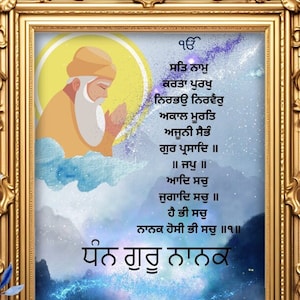 ੴ
ਸਤਿ ਨਾਮੁ
ਕਰਤਾ ਪੁਰਖੁ
ਨਿਰਭਉ ਨਿਰਵੈਰੁ
ਅਕਾਲ ਮੂਰਤਿ
ਅਜੂਨੀ ਸੈਭੰ
ਗੁਰ ਪ੍ਰਸਾਦਿ ॥
॥ ਜਪੁ ॥
ਆਦਿ ਸਚੁ
ਜੁਗਾਦਿ ਸਚੁ ॥
ਹੈ ਭੀ ਸਚੁ
ਨਾਨਕ ਹੋਸੀ ਭੀ ਸਚੁ ॥੧॥
ਧੰਨ ਗੁਰੂ ਨਾਨਕ